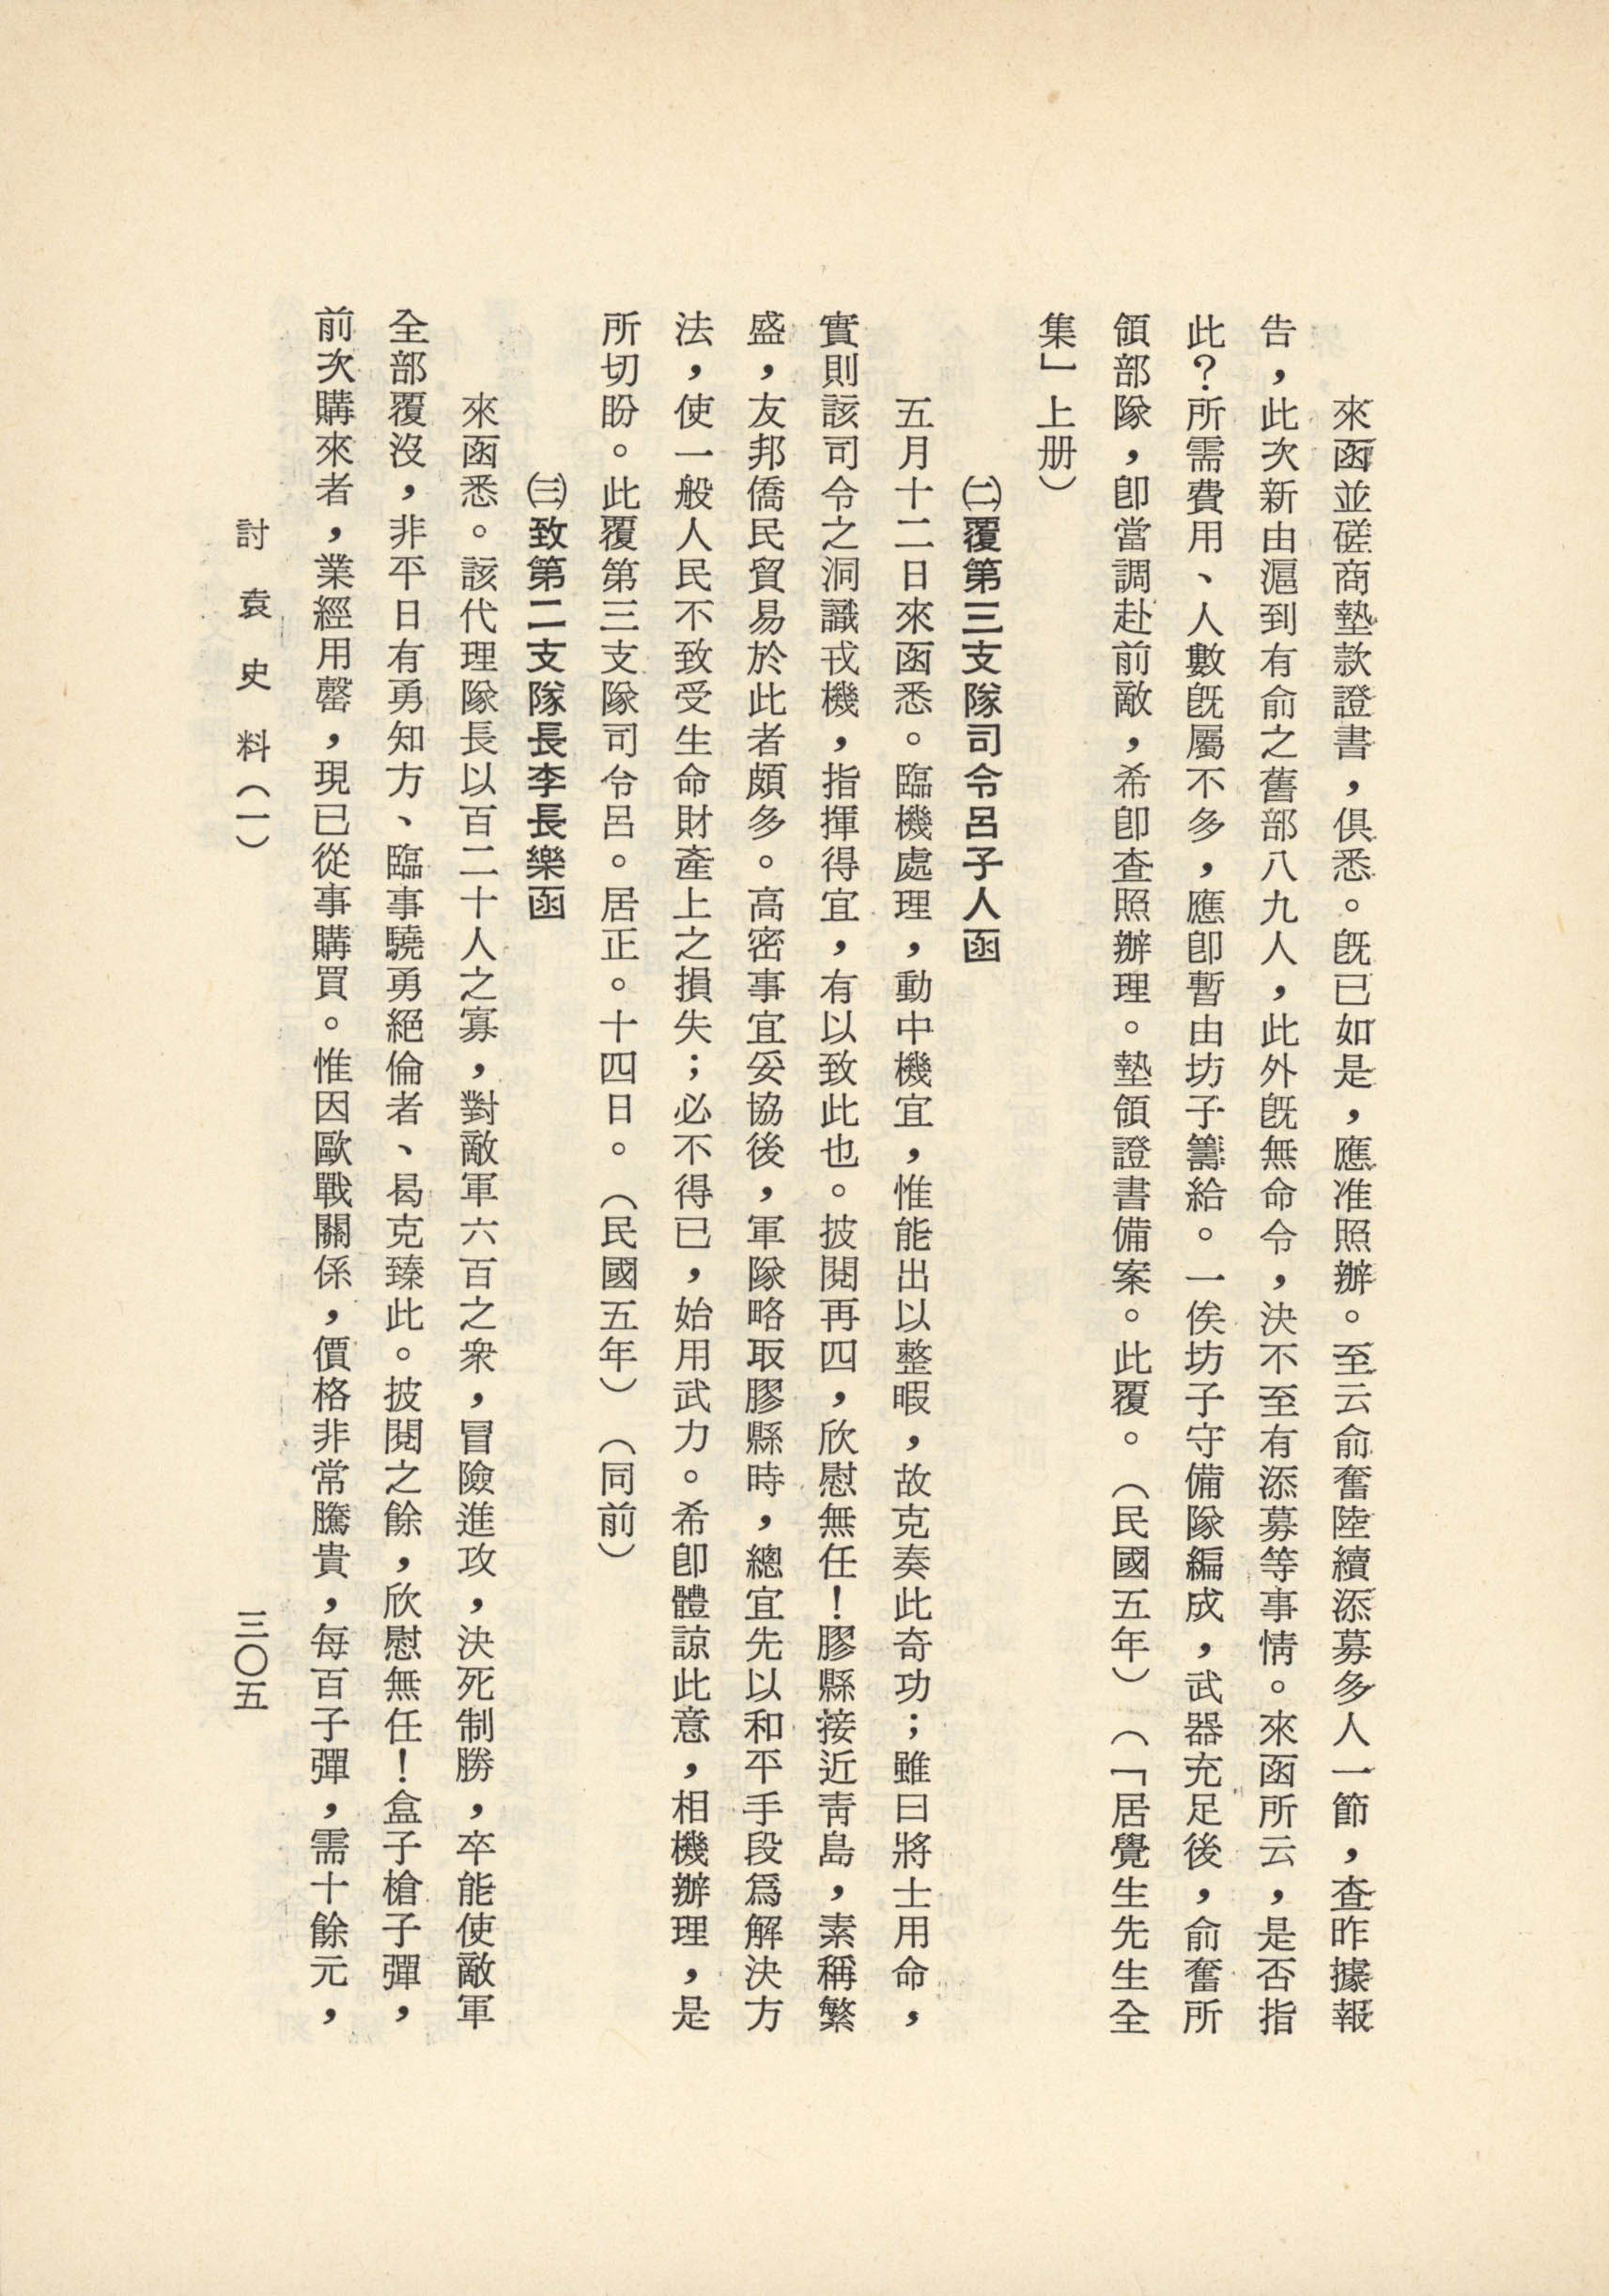 來函並磋商墊款證書，俱悉。旣已如是，應准照辦。至云俞奮陸續添募多人一節，查昨據報
告，此次新由滬到有俞之舊部八九人，此外旣無命令，決不至有添募等事情。來函所云，是否指
此？所需費用、人數旣屬不多，應卽暫由坊子籌給。一俟坊子守備隊編成，武器充足後，俞奮所
領部隊，卽當調赴前敵，希卽查照辦理。墊領證書備案。此覆。（民國五年）（「居覺生先生全
集」上册）
㈡覆第三支隊司令呂子人函
五月十二日來函悉。臨機處理，動中機宜，惟能出以整暇，故克奏此奇功；雖曰將士用命，
實則該司令之洞識戎機，指揮得宜，有以致此也。披閱再四，欣慰無任！膠縣接近靑島，素稱繁
盛，友邦僑民貿易於此者頗多。高密事宜妥協後，軍隊略取膠縣時，總宜先以和平手段爲解決方
法，使一般人民不致受生命財產上之損失；必不得已，始用武力。希卽體諒此意，相機辦理，是
所切盼。此覆第三支隊司令呂。居正。十四日。（民國五年）（同前）
㈢致第二支隊長李長樂函
來函悉。該代理隊長以百二十人之寡，對敵軍六百之衆，冒險進攻，決死制勝，卒能使敵軍
全部覆沒，非平日有勇知方、臨事驍勇絕倫者、曷克臻此。披閱之餘，欣慰無任！盒子槍子彈，
前次購來者，業經用罄，現已從事購買。惟因歐戰關係，價格非常騰貴，每百子彈，需十餘元，
討袁史料（一）
三〇五